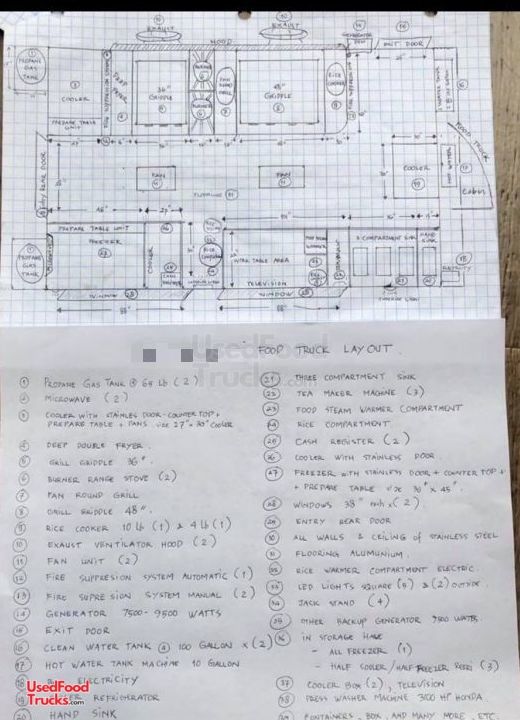 EXAULT
EXAULT
HOOD
GENERATOR
EXIT DOOR
PROPANE
GAS
TANK
COOLER
PREPARE TABLE
UNIT
DEEP FRYER
36"
GRIDDLE
BURNER
BURNER
48"
GRIDDLE
RICE COOKER
FOOD TRUCK
COOLER
HOT WATER
Cabin
FAN
FAN
FLOORING
PREPARE TABLE UNIT
FREEZER
COOLER
WORK TABLE AREA
TELEVISION
3 COMPARTMENT SINK
HAND SINK
PROPANE
GAS
TANK
WINDOW
WINDOW
88"
88"
UsedFood
Trucks.com
FOOD TRUCK LAYOUT.
1 PROPANE GAS TANK @ 65 lb (2)
2 MICROWAVE (2)
3 COOLER WITH STAINLES DOOR-COUNTERTOP +
PREPARE TABLE + PANS size 27" x 30" COOLER
4 DEEP DOUBLE FRYER.
5 GRILL GRIDDLE 36".
6 BURNER RANGE STOVE (2)
7 PAN ROUND GRILL
8 GRILL GRIDDLE 48".
9 RICE COOKER 10 lb (1) & 4 lb (1)
10 EXAUST VENTILATOR HOOD (2)
11 FAN UNIT (2)
12 FIRE SUPPRESION SYSTEM AUTOMATIC (1)
13 FIRE SUPRESION SYSTEM MANUAL (2)
14 GENERATOR 7500 - 9500 WATTS
15 EXIT DOOR
16 CLEAN WATER TANK @ 100 GALLON x (2)
17 HOT WATER TANK MACHINE 10 GALLON
18 ELECTRICITY
REFRIGERATOR
20 HAND SINK
21 THREE COMPARTMENT SINK
22 TEA MAKER MACHINE (3)
23 FOOD STEAM WARMER COMPARTMENT
24 RICE COMPARTMENT
25 CASH REGISTER (2)
26 COOLER WITH STAINLESS DOOR.
27 FREEZER WITH STAINLESS DOOR + COUNTER TOP +
+ PREPARE TABLE size 30" x 45".
28 WINDOWS 38" x (2)
29 ENTRY REAR DOOR
30 ALL WALLS & CEILING of STAINLESS STEEL
31 FLOORING ALUMUNIUM.
32 RICE WARMER COMPARTMENT ELECTRIC.
33 LED LIGHTS SQUARE (5) & (2) OUTSIDE.
34 JACK STAND (4)
35 OTHER BACKUP GENERATOR 7500 WATTS.
36 IN STORAGE HAVE
- ALL FREEZER (1)
- HALF COOLER / HALF FREEZER REFRI (3)
37 COOLER BOX (2), TELEVISION
38 PRESS WASHER MACHINE 3100 HP HONDA.
39 CONTAINERS, BOX, AND MANY MORE, ETC.
UsedFood
Trucks.com